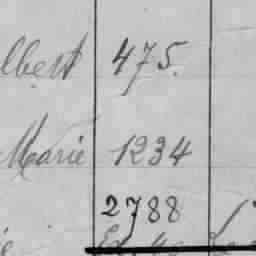 lbert 475.
Marie 1234
2788